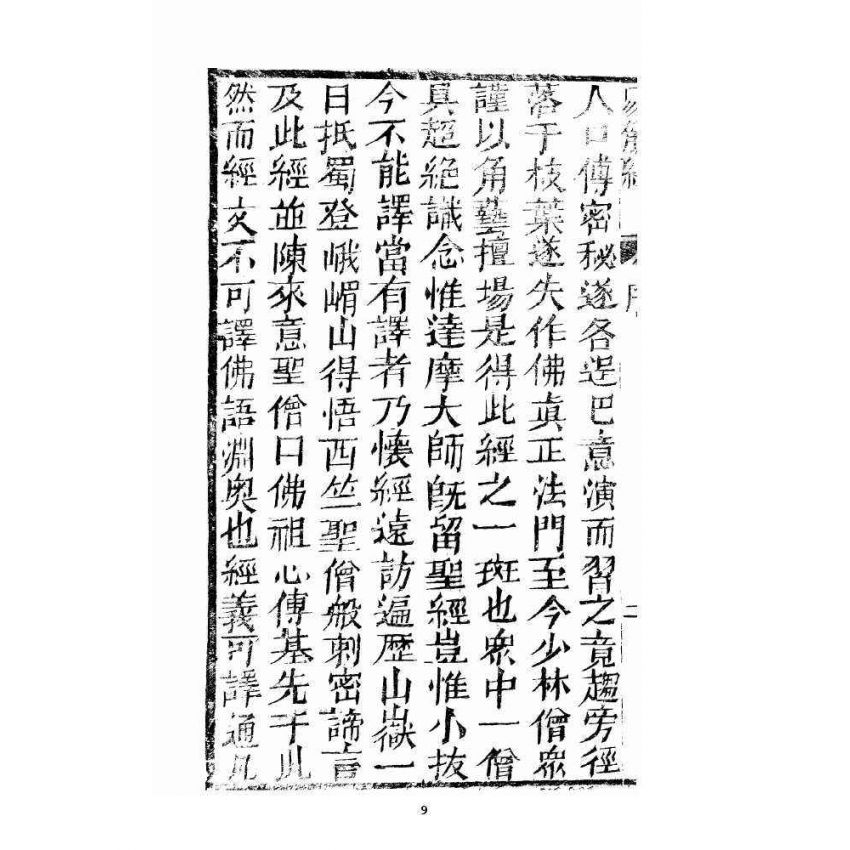 易筋經 序 二
人口傳密秘遂各逞已意演而習之竟趨旁徑
落于枝葉遂失作佛真正法門至今少林僧眾
謹以角藝擅場是得此經之一斑也眾中一僧
具超絕識念惟達摩大師旣留聖經豈惟小技
今不能譯當有譯者乃懷經遠訪遍歷山嶽一
日抵蜀登峨嵋山得悟西竺聖僧般刺密諦言
及此經並陳來意聖僧曰佛祖心傳基先于此
然而經文不可譯佛語淵奧也經義可譯通凡
9